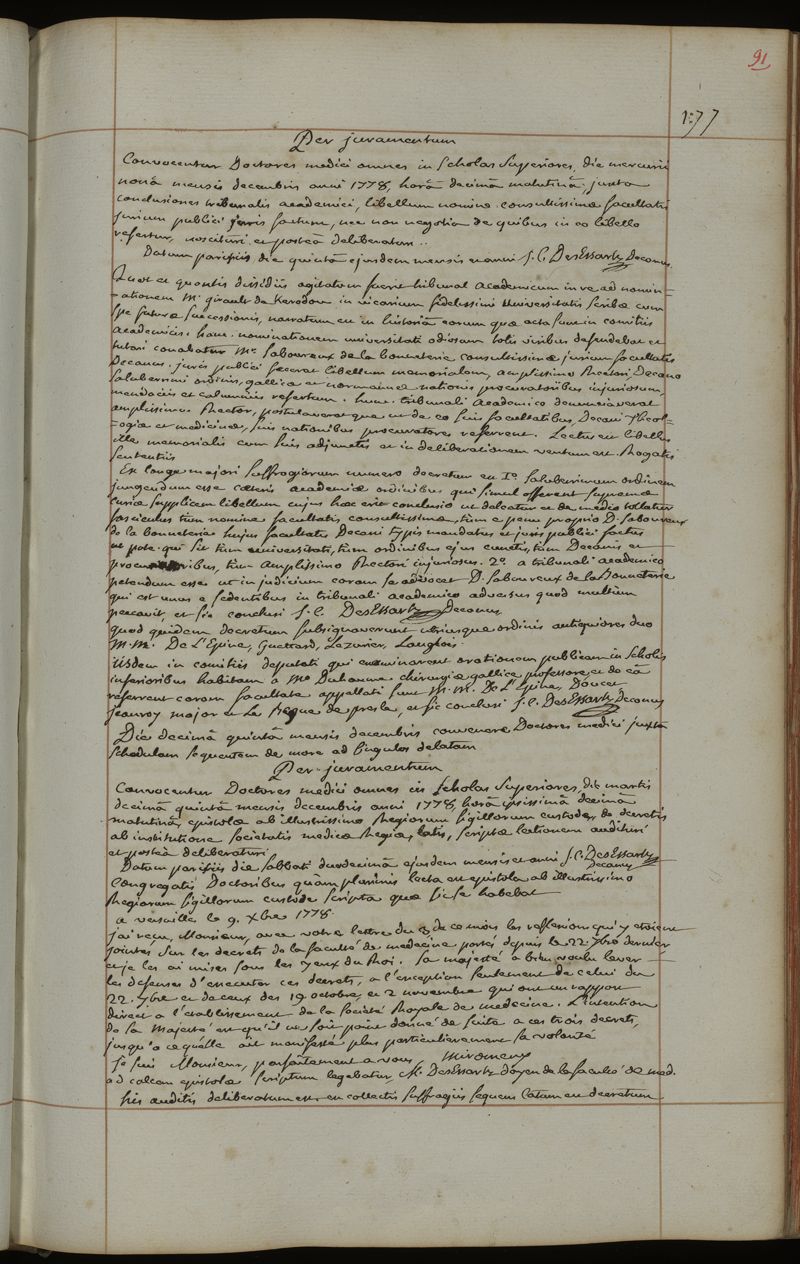 91
177
Per juramentum
Convocentur Doctores medici omnes in Scholas Superiores, die mercurii
nonâ mensis decembris anni 1778, horâ decimâ matutinâ, juxta
conclusiones tribunalis academici, libellum nomine consultissimæ facultatis
jurium publici juris factum, nec non negotia de quibus in eo libello
refertur, noscituri et posteà deliberaturi..
Datum parisiis, die quintâ ejusdem mensis et anni J. C. DesEssartz Decanus
Quot et quantis dissidiis agitatum fuerit tribunal Academicum in re ad nomin-
-ationem Mi girault de Keroudou in vicarium fidelissimi Universitatis scribæ cum
spe futuræ successionis, narratum est in historiâ eorum quæ acta sunt in comitiis
academicis. hanc nominationem universitati odiosam totis viribus defendebat et
tutari conabatur Mr. Saboureux de la bonneterie consultissimæ jurium facultatis
Decanus. juris publici fecerat libellum memorialem, amplissimo Rectori, Decano
Saluberrimi ordinis, gallicæ et normannæ nationis procuratoribus injuriosum,
mendaciis et calumniis refertum. hunc tribunali Academico denunciaverat
amplissimus Rector, postulaveratque ut de eo suis facultatibus, Decani Theol-
-ogiæ et medicinæ, suis nationibus procuratores referrent. Lectus est libellus
ille memorialis cum suis adjunctis et in deliberationem ventum est. Rogatis
sententiis
Ex longe majori suffragiorum numero decretum est 1o. saluberrimum ordinem
jungendum esse cæteris academiæ ordinibus qui simul offerent supremæ
curiæ supplicem libellum cujus hæc erit conclusio ut deleatur et de medio tollatur
fasciculus tum nomine facultatis consultissimæ, tum e penu proprio D. Saboureux
de la bonneterie hujus facultatis Decani typis mandatus et juris publici factus
ut pote qui sit tum universitati, tum ordinibus ejus cunctis, tum Decanis et
procuratoribus, tum amplissimo Rectori injuriosus. 2o. a tribunali academico
petendum esse ut in judicium coram se advocet D. Saboureux de la Bonneterie
qui est unus e sedentibus in tribunali academico adversus quod multum
peccavit, et sic conclusi J. C. DesEssartz Decanus
quod quidem decretum subsignaverunt utriusque ordinis antiquiores duo
M. M. De L'Epine, Guettard, Lezurier, Langlois.
iisdem in comitiis deputati qui examinarent orationem publicam in scholis
inferioribus habitam a Mo Duhaume chirurgiæ gallicæ professore, et de eâ
referrent coram facultate appellati sunt M. M. De L'Epine, Doucet
Jeanroy major et Le Begue de presle, et sic conclusi J. C. DesEssartz Decanus
Die decimâ quintâ mensis decembris convenere Doctores medici juxtà
schedulam sequentem de more ad singulos delatam
Per juramentum
Convocentur Doctores medici omnes in Scholas Superiores, die martis
decimâ quintâ mensis decembris anni 1778, horâ ipsissimâ decimâ
matutinâ, epistolæ ab illustrissimo Regiorum sigillorum custode, de decretis
ab institutione societatis medicæ Regiæ latis, scriptæ lectionem audituri
et posteà deliberaturi.
Datum parisiis die sabbati duodecimâ ejusdem mensis et anni J. C. DesEssartz
Decanus
Congregatis Doctoribus quàm plurimis lecta est epistola ab illustrissimo
Regiorum sigillorum custode scripta quæ sic se habebat
a versaille le 9. Xbre 1778.
j'ai reçu, Monsieur, avec votre lettre du 3 de ce mois les reflexions qui y etoient
jointes sur les decrets de la faculté de medecine portés depuis le 22 7bre dernier
et je les ai mises sous les yeux du Roi. sa majesté a bien voulu lever
les defenses d'executer ces decrets, a l'exception seulement de celui du
22. 7bre et de ceux des 19 octobre, et 2 novembre qui ont un rapport
direct a l'etablissement de la Société Royale de medecine. L'intention
de sa Majesté est qu'il ne soit point donné de suite a ces trois decrets,
jusqu'a ce qu'elle ait manifesté plus particulierement sa volonté
je suis Monsieur, parfaitement a vous, Miromenil
ad calcem epistolæ scriptum legebatur, M. DesEssartz doyen de la faculté de med.
his auditis deliberatum est, et collectis suffragiis sequens latum est decretum